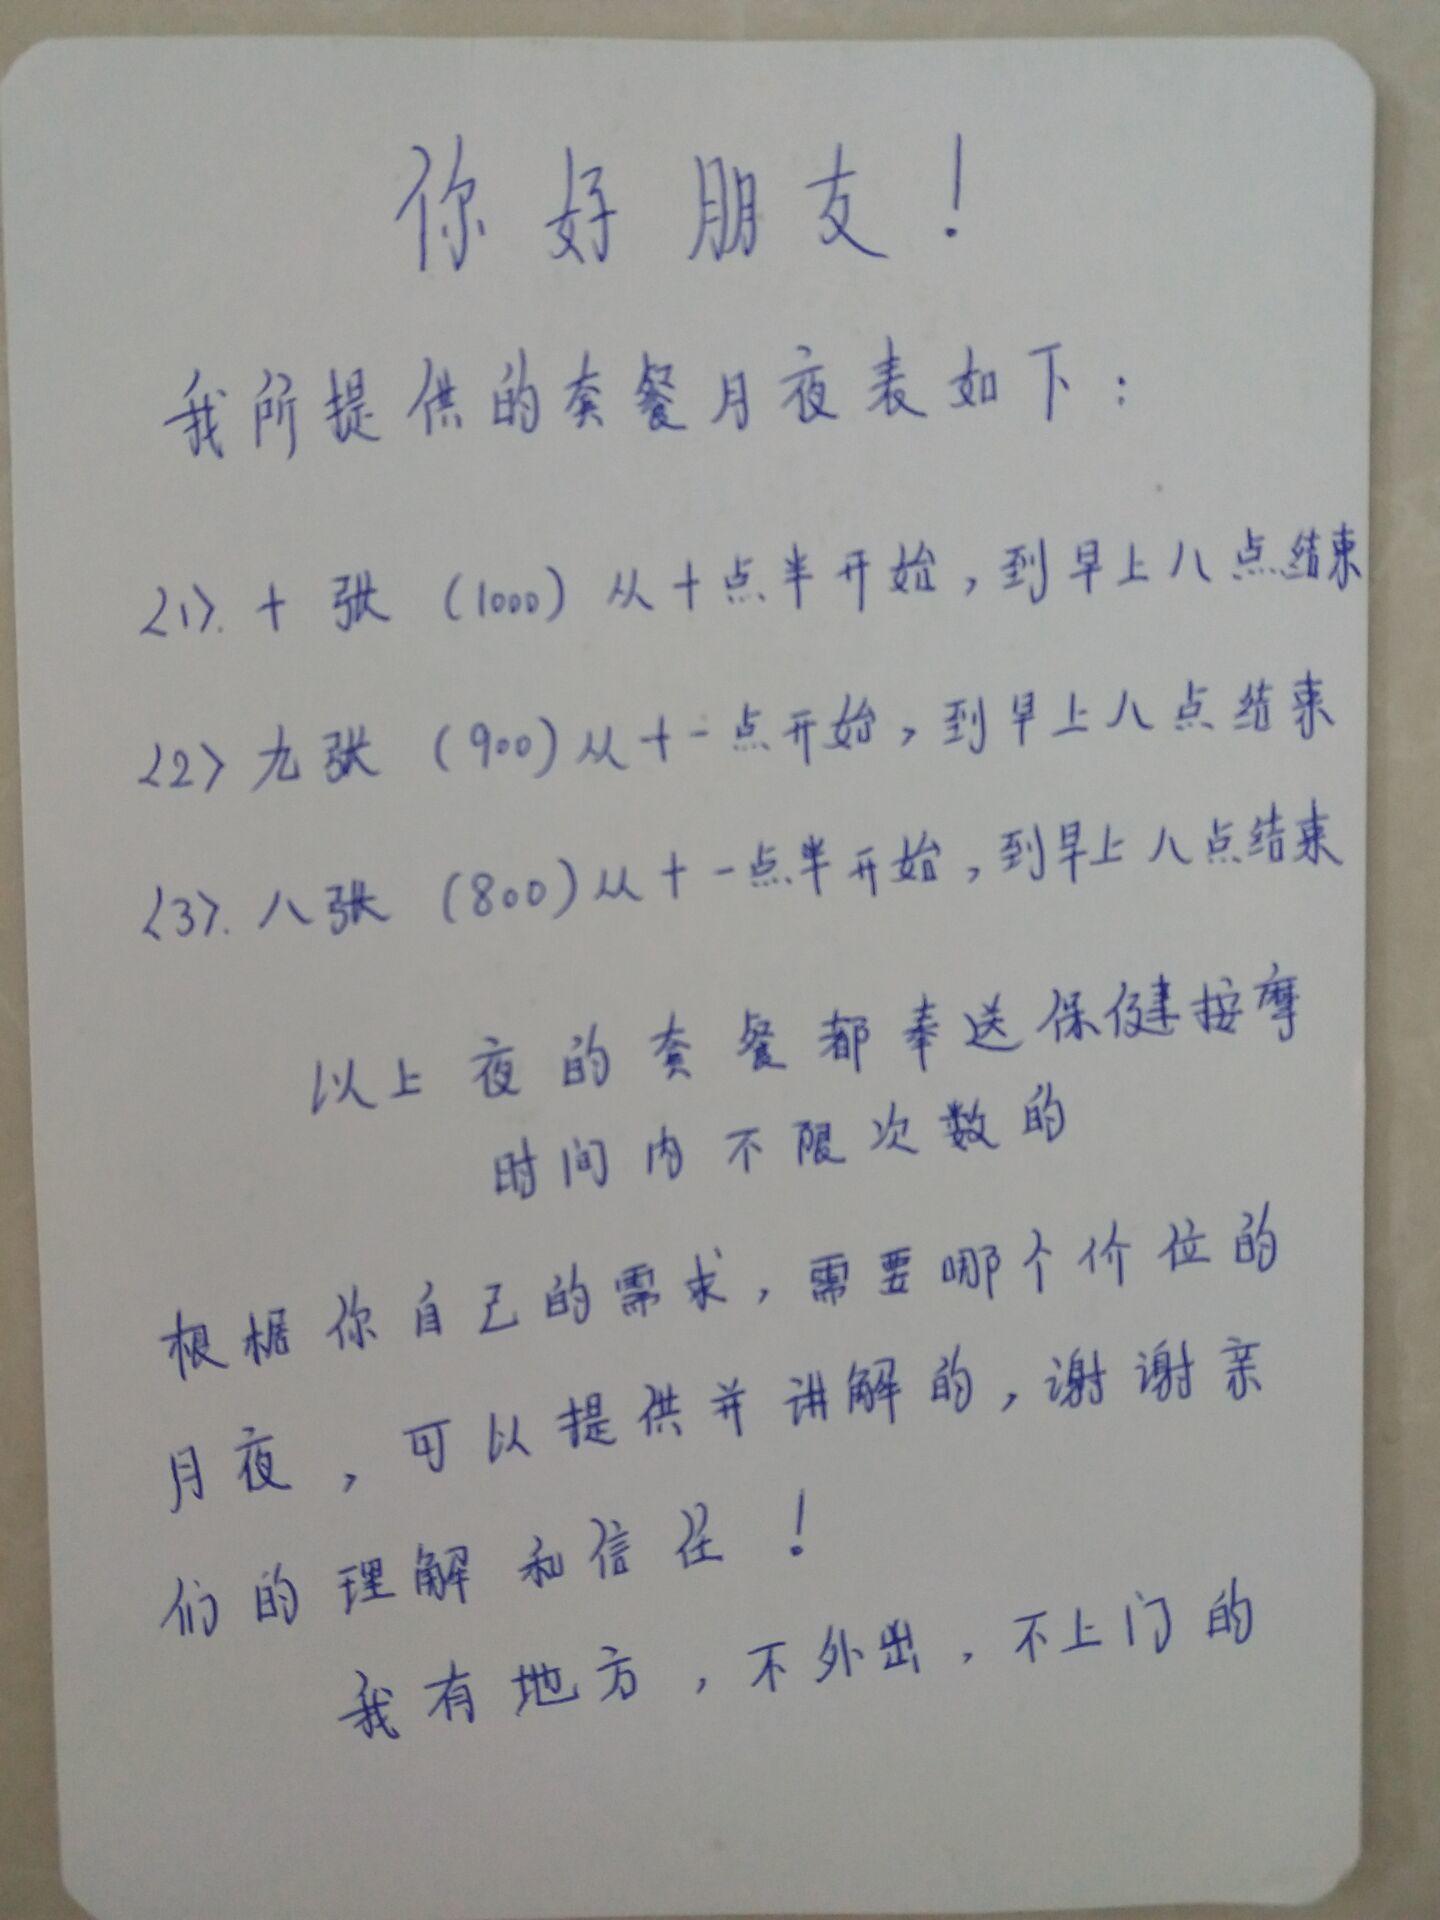 你好朋友!
我所提供的套餐月夜表如下:
<1>.十张(1000)从十点半开始,到早上八点结束
<2>九张(900)从十一点开始,到早上八点结束
<3>.八张(800)从十一点半开始,到早上八点结束
以上夜的套餐都奉送保健按摩
时间内不限次数的
根据你自己的需求,需要哪个价位的
月夜,可以提供并讲解的,谢谢亲
们的理解和信任!
我有地方,不外出,不上门的